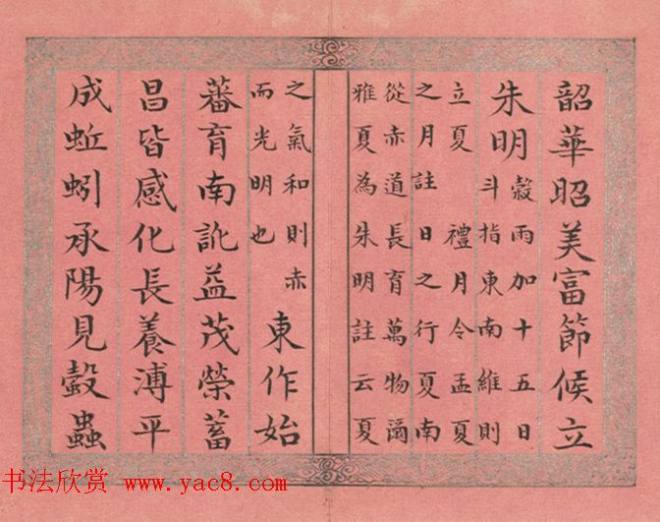 韶華昭美富節候立
朱明
穀雨加十五日
斗指東南維則
立夏 禮月令孟夏
之月註日之行夏南
從赤道長育萬物爾
雅夏為朱明註云夏
之氣和則赤
而光明也
東作始
蕃育南訛益茂榮蓄
昌皆感化長養溥平
成蚯蚓承陽見螜蟲
书法欣赏 www.yac8.com